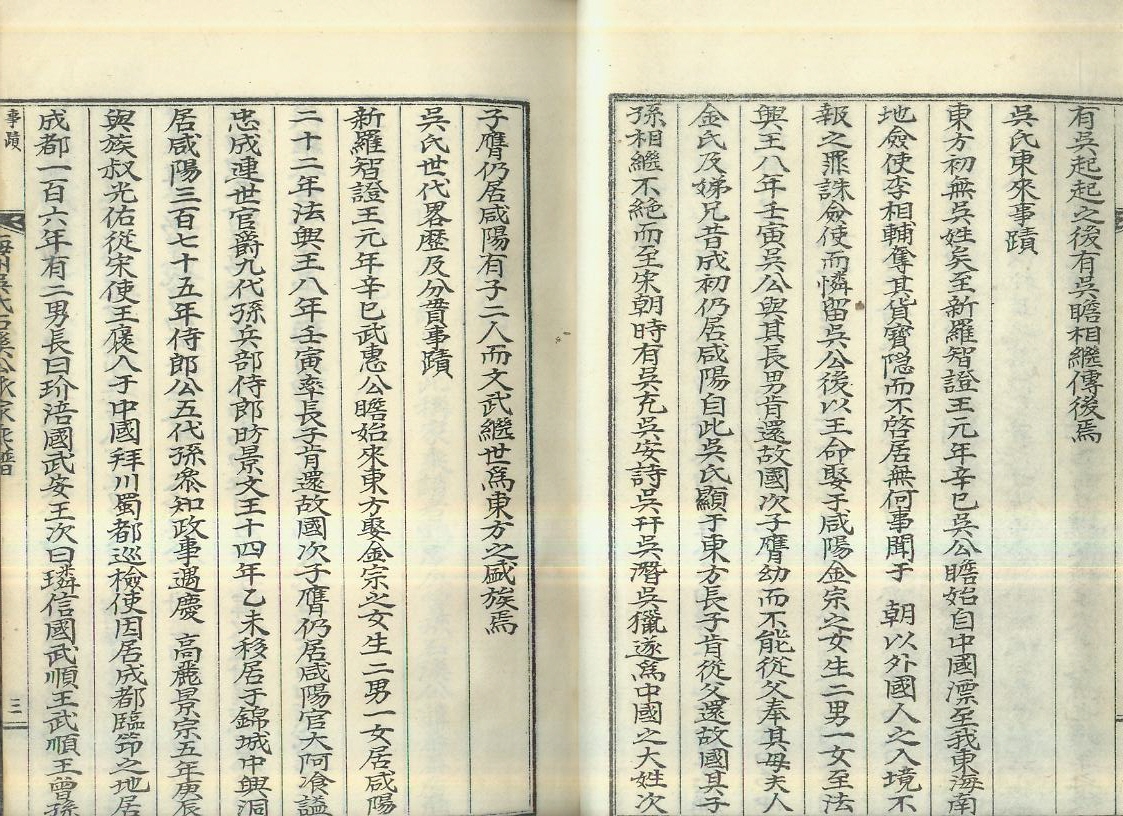 有吳起起之後有吳瞻相繼傳後焉
吳氏東來事蹟
東方初無吳姓矣至新羅智證王元年辛巳吳公瞻始自中國漂至我東海南
地僉使李相輔奪其貨寶隱而不啓居無何事聞于 朝以外國人之入境不
報之罪誅僉使而憐留吳公後以王命娶于咸陽金宗之女生二男一女至法
興王八年壬寅吳公與其長男肯還故國次子膺幼而不能從父奉其母夫人
金氏及娣兄昔成初仍居咸陽自此吳氏顯于東方長子肯從父還故國其子
孫相繼不絶而至宋朝時有吳充吳安詩吳幵吳潛吳獵遂爲中國之大姓次
子膺仍居咸陽有子二人而文武繼世爲東方之盛族焉
吳氏世代畧歷及分貫事蹟
新羅智證王元年辛巳武惠公瞻始來東方娶金宗之女生二男一女居咸陽
二十二年法興王八年壬寅率長子肯還故國次子膺仍居咸陽官大阿飡謚
忠成連世官爵九代孫兵部侍郎昉景文王十四年乙未移居于錦城中興洞
居咸陽三百七十五年侍郎公五代孫叅知政事遇慶 高麗景宗五年庚辰
與族叔光佑從宋使王褒入于中國拜川蜀都巡檢使因居成都臨筇之地居
成都一百六年有二男長曰玠涪國武安王次曰璘信國武順王武順王曾孫
事蹟
三